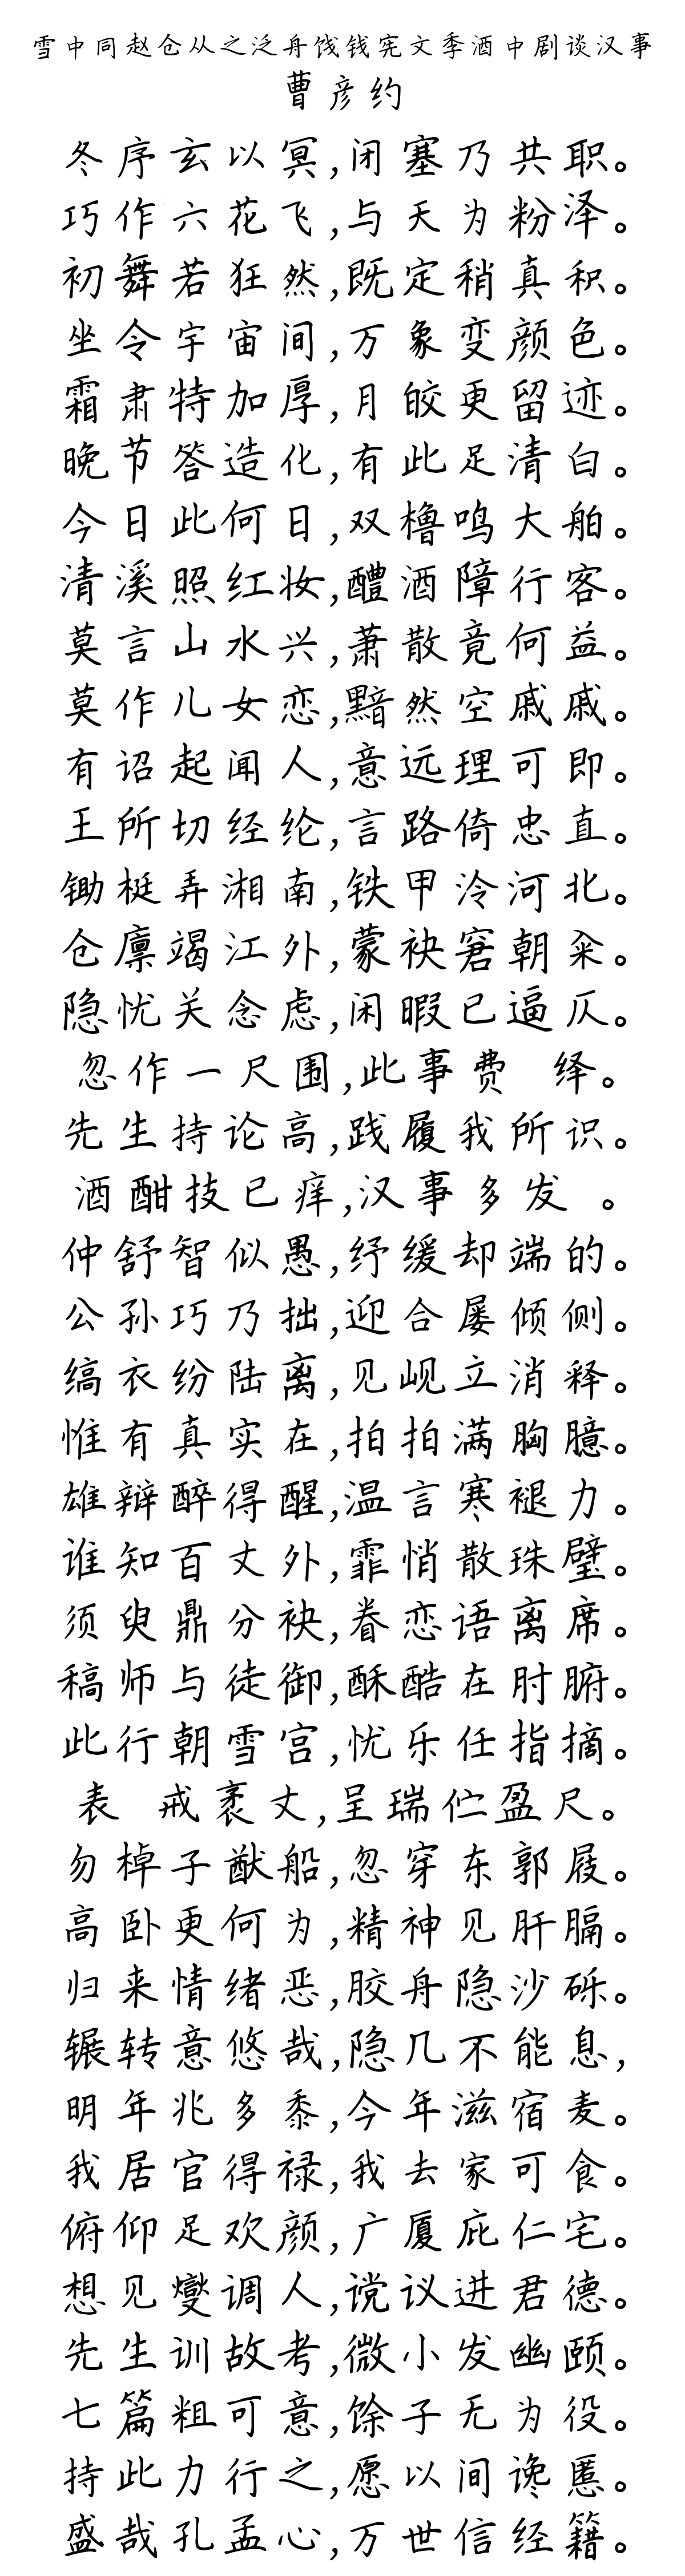 雪中同赵仓从之泛舟饯钱宪文季酒中剧谈汉事
曹彦约
冬序玄以冥,闭塞乃共职。
巧作六花飞,与天为粉泽。
初舞若狂然,既定稍真积。
坐令宇宙间,万象变颜色。
霜肃特加厚,月皎更留迹。
晚节答造化,有此足清白。
今日此何日,双橹鸣大舶。
清溪照红妆,醴酒障行客。
莫言山水兴,萧散竟何益。
莫作儿女恋,黯然空戚戚。
有诏起闻人,意远理可即。
王所切经纶,言路倚忠直。
锄梃弄湘南,铁甲泠河北。
仓廪竭江外,蒙袂窘朝籴。
隐忧关念虑,闲暇已逼仄。
忽作一尺围,此事费 绎。
先生持论高,践履我所识。
酒酣技已痒,汉事多发 。
仲舒智似愚,纾缓却端的。
公孙巧乃拙,迎合屡倾侧。
缟衣纷陆离,见岘立消释。
惟有真实在,拍拍满胸臆。
雄辩醉得醒,温言寒褪力。
谁知百丈外,霏悄散珠璧。
须臾鼎分袂,眷恋语离席。
稿师与徒御,酥酷在肘腑。
此行朝雪宫,忧乐任指摘。
表 戒袤丈,呈瑞伫盈尺。
勿棹子猷船,忽穿东郭屐。
高卧更何为,精神见肝膈。
归来情绪恶,胶舟隐沙砾。
辗转意悠哉,隐几不能息,
明年兆多黍,今年滋宿麦。
我居官得禄,我去家可食。
俯仰足欢颜,广厦庇仁宅。
想见燮调人,谠议进君德。
先生训故考,微小发幽颐。
七篇粗可意,馀子无为役。
持此力行之,愿以间谗慝。
盛哉孔孟心,万世信经籍。